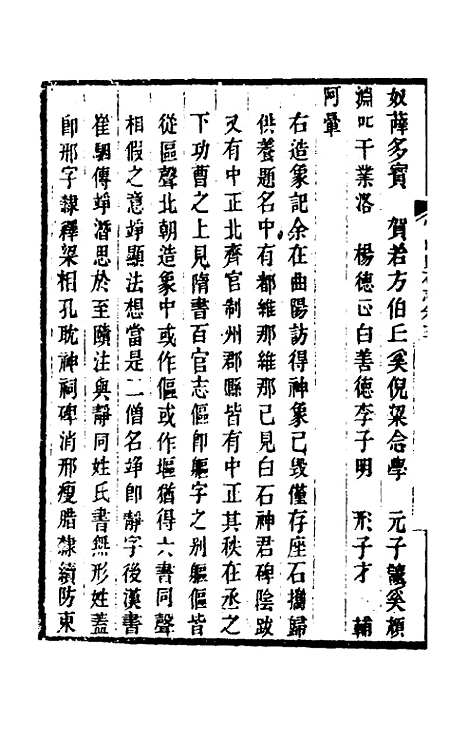 奴薛多賓 賀若方伯丘奚倪梁舍學 元子 奚頍
淵叱干業洛 楊德正白善德李子明 形子才 輔
阿暈
右造象記余在曲陽訪得神象已毀僅存座石攜歸
供養題名中有都維那維那已見白石神君碑陰跋
又有中正北齊官制州郡縣皆有中正其秩在丞之
下功曹之上見隋書百官志傴卽軀字之别軀傴皆
從區聲北朝造象中或作傴或作塸猶得六書同聲
相假之意竫顯法想當是二僧名竫卽靜字後漢書
崔駰傳竫潛思於至賾注與靜同姓氏書無形姓蓋
卽邢字隸釋梁相孔耽神祠碑消邢瘦腊隸續防東